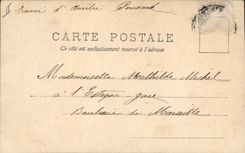 Envoi d'Aurélie Ponsard
CARTE POSTALE
Ce côté est exclusivement réservé à l'adresse
Mademoiselle Mathilde Michel
à l'Estaque-gare
Banlieue de Marseille